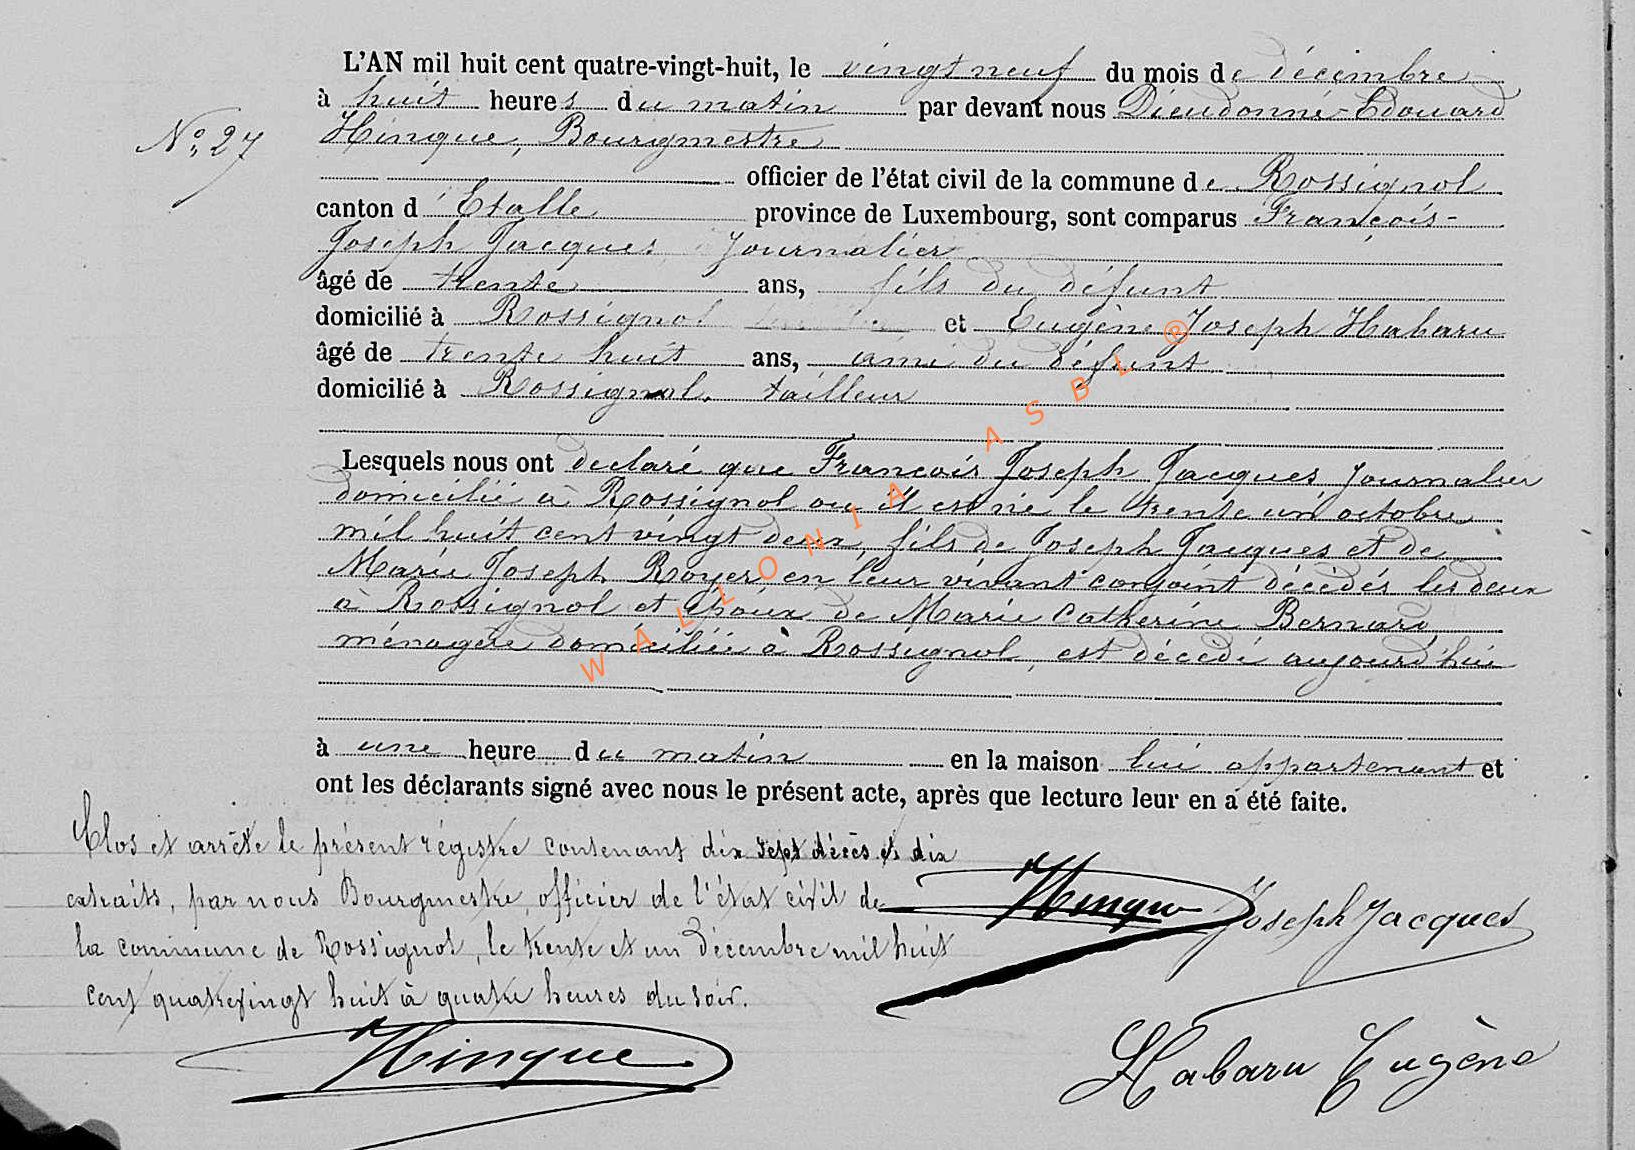 L'AN mil huit cent quatre-vingt-huit, le vingt neuf du mois de décembre
à huit heures du matin par devant nous Dieudonné-Edouard
N° 27
Hinque, Bourgmestre
officier de l'état civil de la commune de Rossignol
canton d'Etalle province de Luxembourg, sont comparus François-
Joseph Jacques, Journalier
âgé de trente ans, fils du défunt
domicilié à Rossignol et Eugène Joseph Habaru
âgé de trente huit ans, ami du défunt
domicilié à Rossignol, tailleur
Lesquels nous ont declaré que François Joseph Jacques Journalier
domicilié à Rossignol ou il est né le trente un octobre
mil huit cent vingt deux, fils de Joseph Jacques et de
Marie Joseph Royer en leur vivant conjoint décédés les deux
à Rossignol et époux de Marie Catherine Bernard
ménagère domiciliée à Rossignol, est décédé aujourd'hui
à une heure du matin en la maison lui appartenant et
ont les déclarants signé avec nous le présent acte, après que lecture leur en a été faite.
Clos et arrêté le présent régistre contenant dix sept décès et dix
extraits, par nous Bourgmestre, officier de l'état civil de
la commune de Rossignol, le trente et un décembre mil huit
cent quatrevingt huit à quatre heures du soir.
Hinque
Joseph Jacques
Hinque
Habaru Eugène
WALLONIA ASBL ®